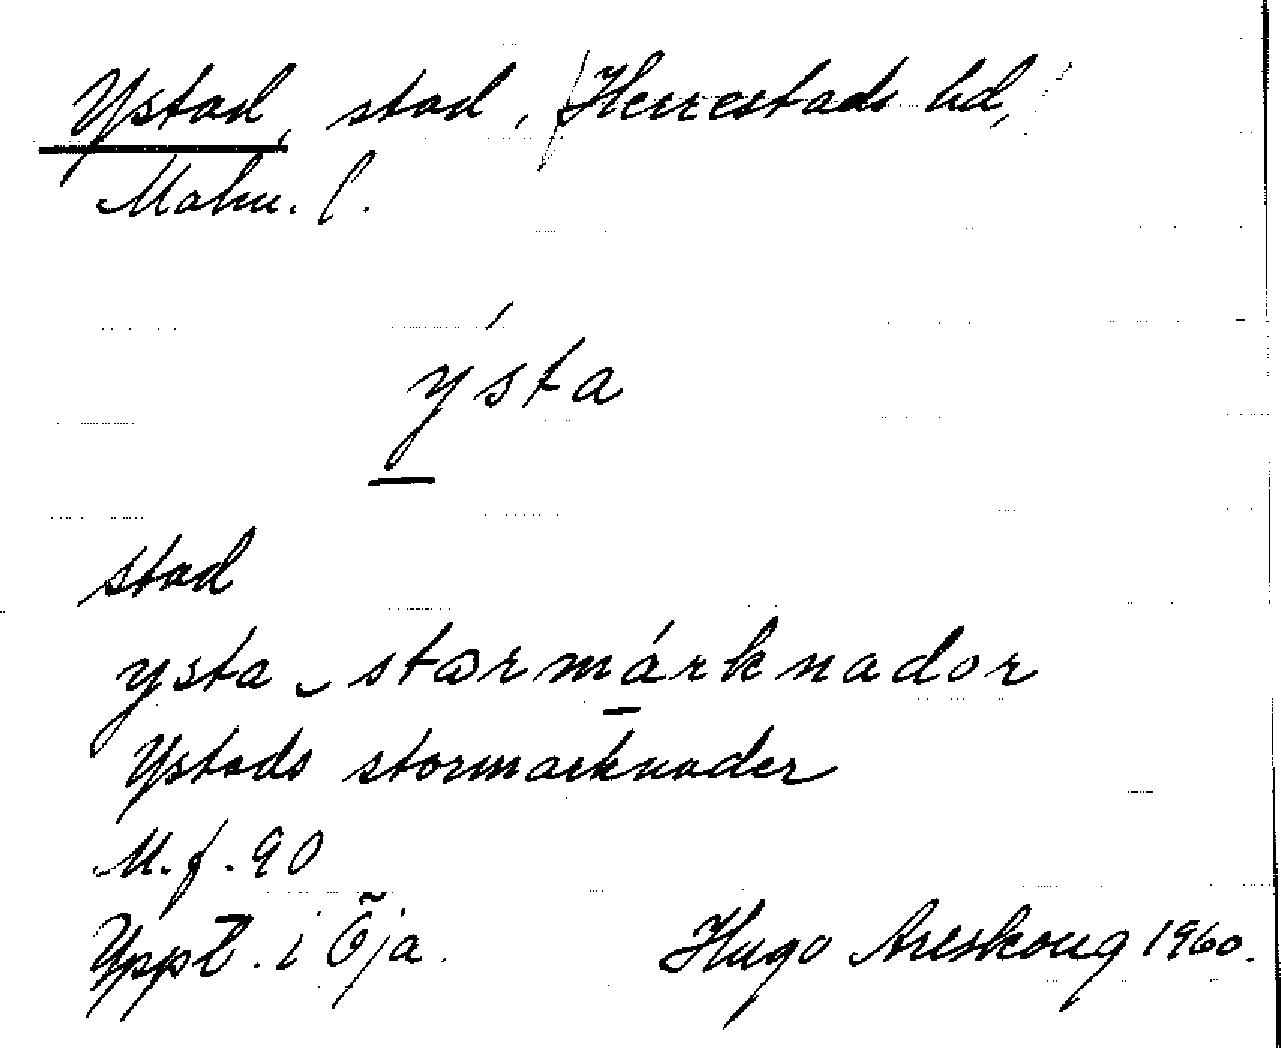 Ystad, stad, (Herrestads hd,)
Malm. l.
ýsta
stad
ysta stormárknador
Ystads stormarknader
M.f. 90
Uppt. i Öja. Hugo Areskoug 1960.